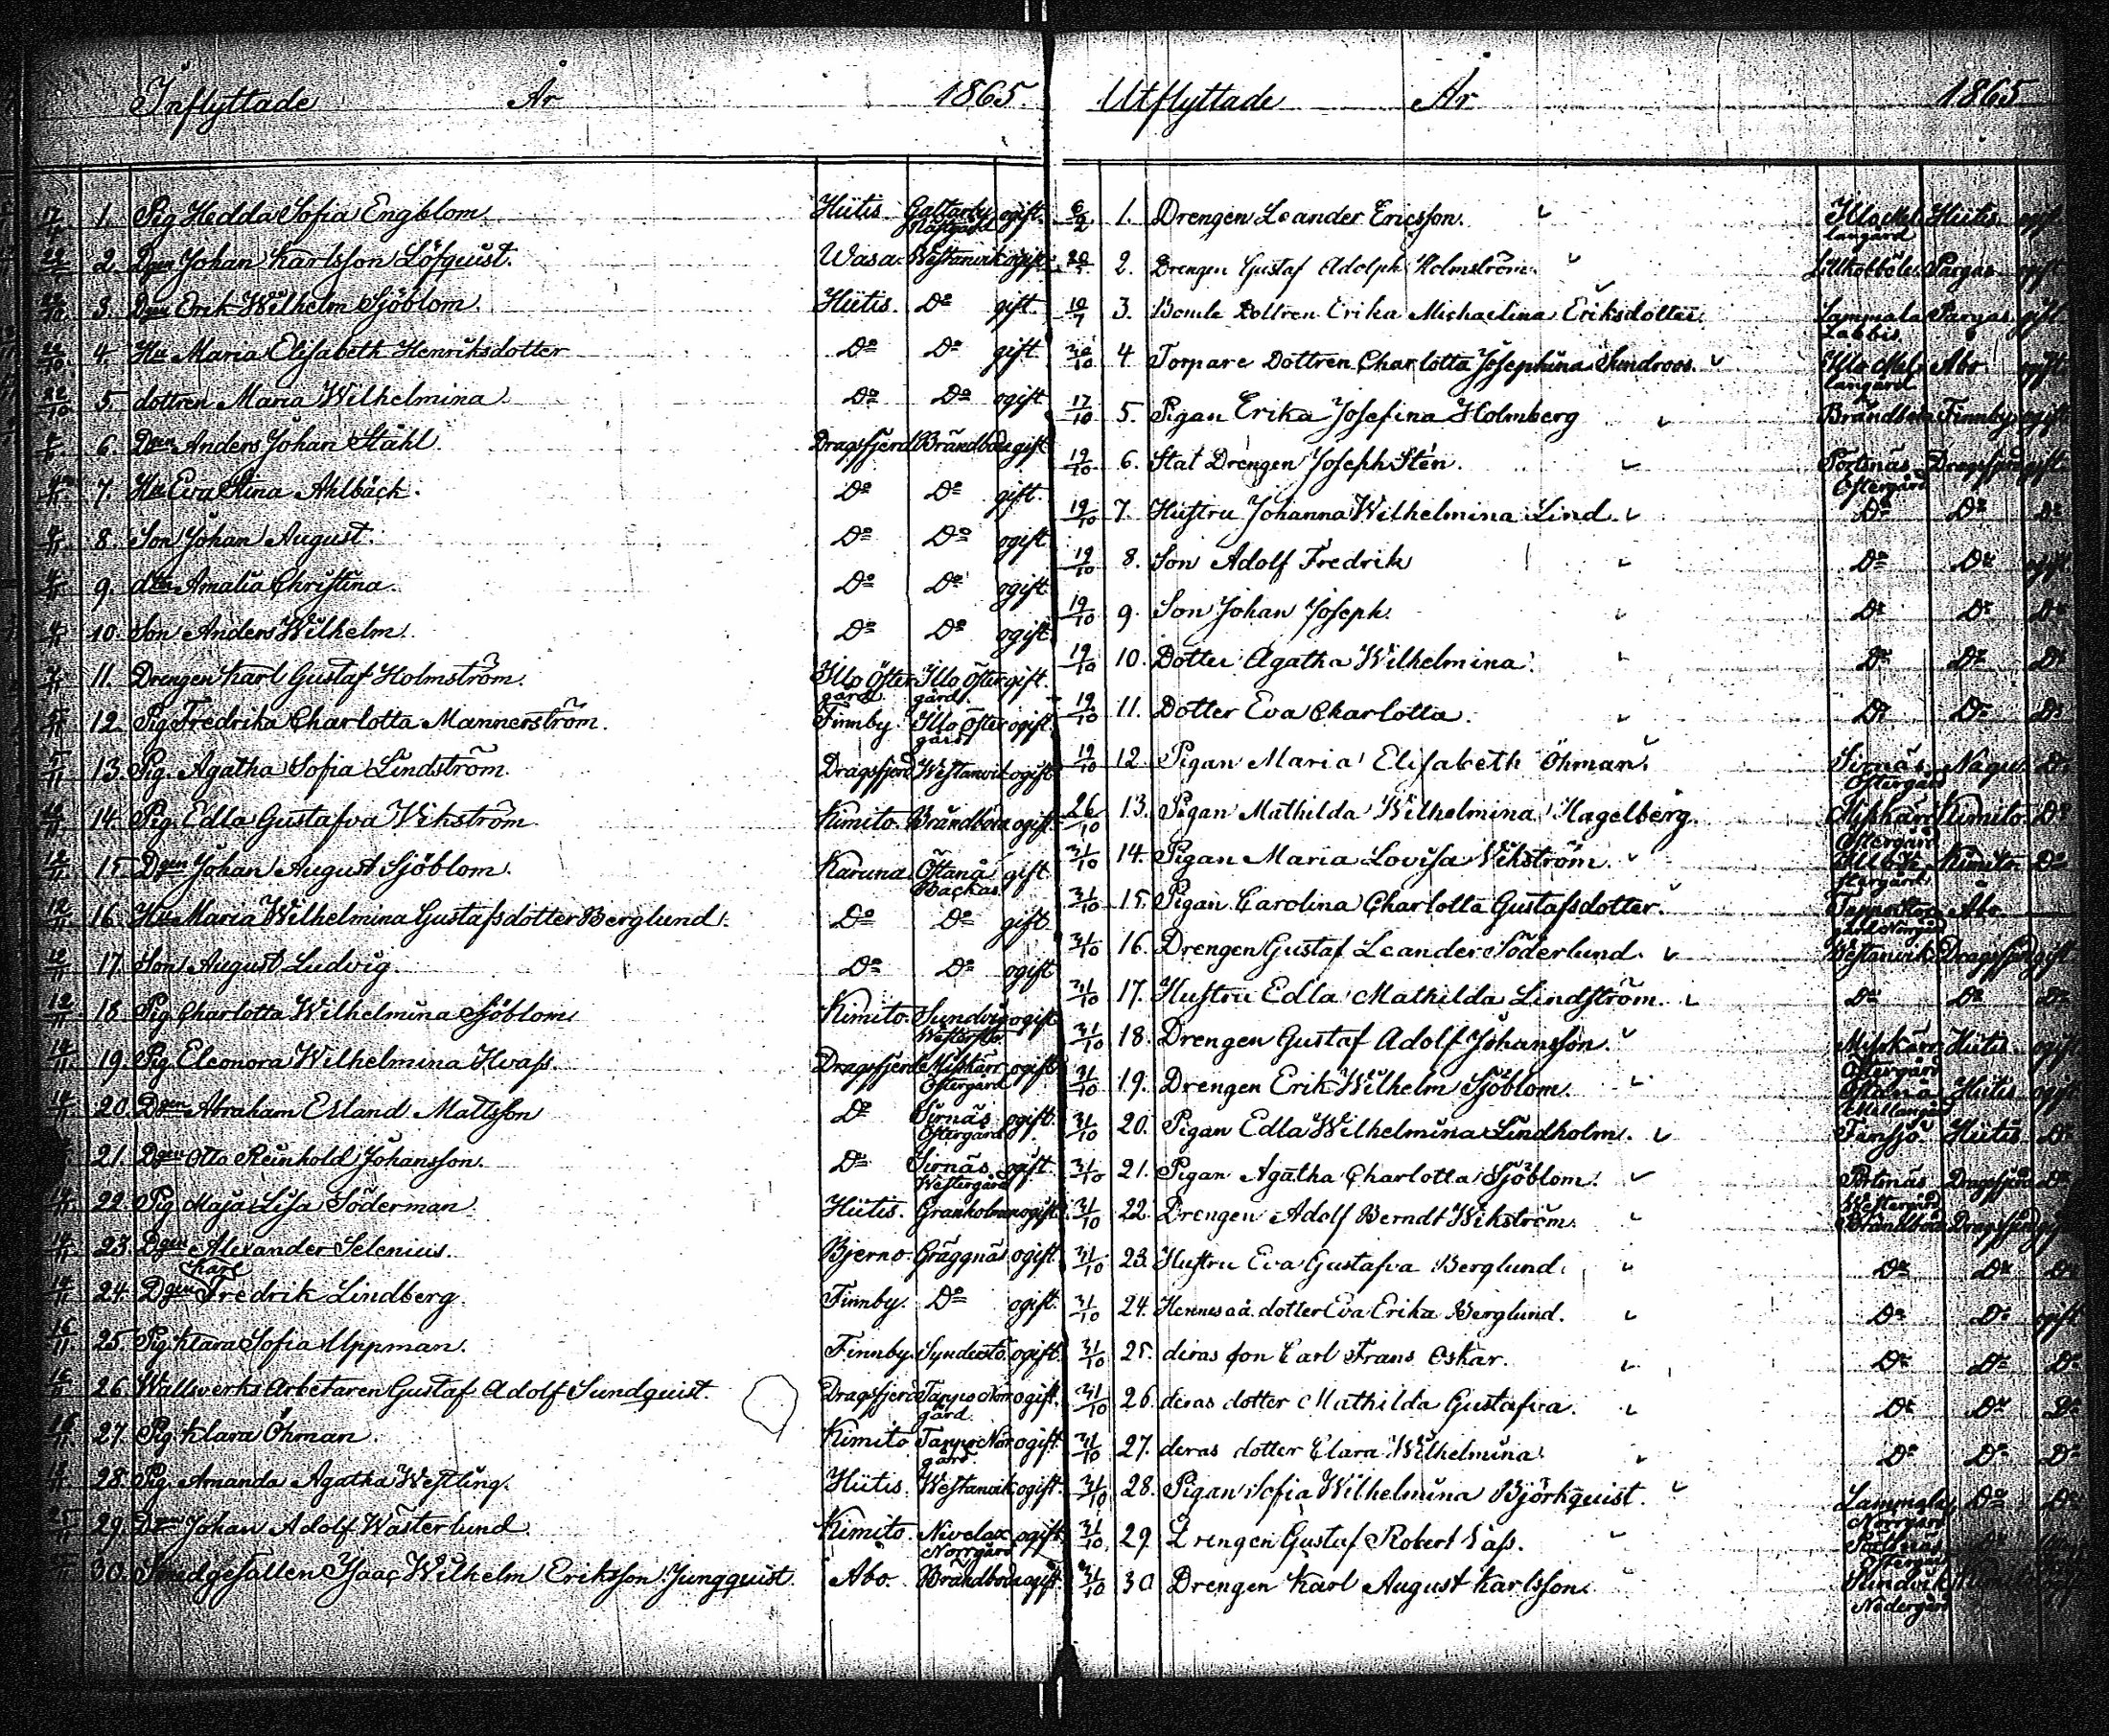 Inflyttade År 1865.
1. Pig. Hedda Sofia Engblom. Hiitis Galtarby ogift.
2. Dgen Johan Karlsson Löfquist. Wasa. Westanvik ogift.
22/10 3. Dgen Erik Wilhelm Sjöblom. Hiitis. Do gift.
22/10 4. Hu Maria Elisabeth Henriksdotter Do Do gift.
22/10 5. dottren Maria Wilhelmina. Do Do ogift
6. Dgen Anders Johan Ståhl. Dragsfjerd Brändboda gift
7. Hu Eva Stina Ahlbäck. Do Do gift.
8. Son Johan August. Do Do ogift
9. dttn Amalia Christina. Do Do ogift
10. Son Anders Wilhelm. Do Do ogift.
11. Drengen Karl Gustaf Holmström. Illo Öster Illo Öster gift.
gård. gård.
12. Pig Fredrika Charlotta Mannerström. Finnby. Illo Öster ogift.
gård
5/11 13. Pig. Agatha Sofia Lindström. Dragsfjerd Westanvik ogift
14. Pig. Edla Gustafva Vikström Kimito. Brändboda ogift.
12/11 15. Dgen Johan August Sjöblom. Karuna. Östanå gift
Backas
12/11 16. Hu Maria Wilhelmina Gustafsdotter Berglund. Do Do gift.
12/11 17. Son August Ludvig. Do Do ogift
12/11 18. Pig Charlotta Wilhelmina Sjöblom Kimito. Sundvik ogift
14/11 19. Pig. Eleonora Wilhelmina Hvass. Dragsfjerd Misskärr ogift
Östergård
14/11 20. Dgen Abraham Erland Mattsson Do Sirnäs ogift.
Östergård
21. Dgen Otto Reinhold Johansson. Do Sirnäs ogift.
Westergård
14/11 22. Pig Maja Lisa Söderman Hiitis. Granholmen ogift
14/11 23. Dgen Alexander Selenius. Bjerno. Gräggnäs ogift.
Karl
14/11 24. Dgen Fredrik Lindberg. Finnby. Do ogift.
16/11 25. Pig. Klara Sofia Uppman. Finnby. ogift.
16/11 26. Wallsverks Arbetaren Gustaf Adolf Sundquist. Dragsfjerd Tappo Norr ogift.
gård.
16/11 27. Pig. Klara Öhman. Kimito Tappo Norr ogift.
gård.
28. Pig. Amanda Agatha Westling. Hiitis. Westanvik ogift.
25/11 29. Dgen Johan Adolf Wästerlund Kimito. Nivelax ogift
Norrgård
30. Isaac Wilhelm Eriksson Jungquist. Åbo. Brändboda ogift
Utflyttade År 1865
6/2 1. Drengen Leander Ericsson. Hiitis ogift
Langård
2. Drengen Gustaf Adolph Holmström. Pargas ogift
10/7 3. Bonde Dottren Erika Michaelina Eriksdotter. Lammala Pargas gift
Labbis
10/10 4. Torpare Dottren Charlotta Josephina Sundroos. Åbo ogift
Langård
17/10 5. Pigan Erika Josefina Holmberg Brändboda Finnby ogift
19/10 6. Stat Drengen Joseph Sten. Pörtsnäs Dragsfjerd gift
Östergård
19/10 7. Hustru Johanna Wilhelmina Lind. Do Do Do
19/10 8. Son Adolf Fredrik Do Do ogift
19/10 9. Son Johan Joseph. Do Do Do
19/10 10. Dotter Agatha Wilhelmina. Do Do Do
19/10 11. Dotter Eva Charlotta. Do Do Do
19/10 12. Pigan Maria Elisabeth Öhman. Sirnäs Nagu. Do
Östergård
26/10 13. Pigan Mathilda Wilhelmina Hagelberg. Misskärr Kimito. Do
Östergård
31/10 14. Pigan Maria Lovisa Vikström. Illo Ö- Kimito. Do
stergård
31/10 15. Pigan Carolina Charlotta Gustafsdotter. Åbo
31/10 16. Drengen Gustaf Leander Söderlund. Westanvik Dragsfjerd gift
31/10 17. Hustru Edla Mathilda Lindström. Do Do Do
31/10 18. Drengen Gustaf Adolf Johansson. Misskärr Hiitis. ogift
Östergård
31/10 19. Drengen Erik Wilhelm Sjöblom. Östanå Hiitis ogift
Mellangård
31/10 20. Pigan Edla Wilhelmina Lindholm. Hiitis Do
31/10 21. Pigan Agatha Charlotta Sjöblom. Pörtsnäs Dragsfjerd Do
Westergård
31/10 22. Drengen Adolf Berndt Wikström. Brändboda Dragsfjerd gift
31/10 23. Hustru Eva Gustafva Berglund. Do Do Do
31/10 24. Hennes oä. dotter Eva Erika Berglund. Do Do ogift
31/10 25. deras son Carl Frans Oskar. Do Do Do
31/10 26. deras dotter Mathilda Gustafva. Do Do Do
31/10 27. deras dotter Clara Wilhelmina. Do Do Do
31/10 28. Pigan Sofia Wilhelmina Björkquist. Lammala Do Do
Norrgård
31/10 29. Drengen Gustaf Robert Vass.
Östergård
31/10 30 Drengen Karl August Karlsson. Sundvik
Nedergård